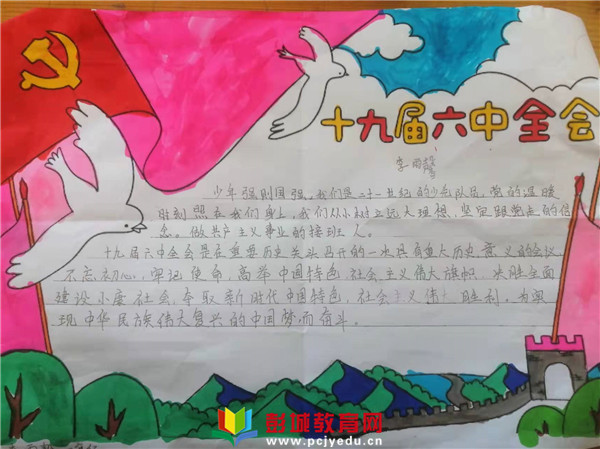 十九届六中全会
李雨馨
少年强则国强。我们是二十一世纪的少先队员,党的温暖
时刻照在我们身上,我们从小树立远大理想,坚定跟党走的信
念。做共产主义事业的接班人。
十九届六中全会是在重要历史关头召开的一次具有重大历史意义的会议
不忘初心,牢记使命,高举中国特色社会主义伟大旗帜,决胜全面
建设小康社会,夺取新时代中国特色,社会主义伟大胜利,为实
现中华民族伟大复兴的中国梦而奋斗。
彭城教育网
www.pcjyedu.cn